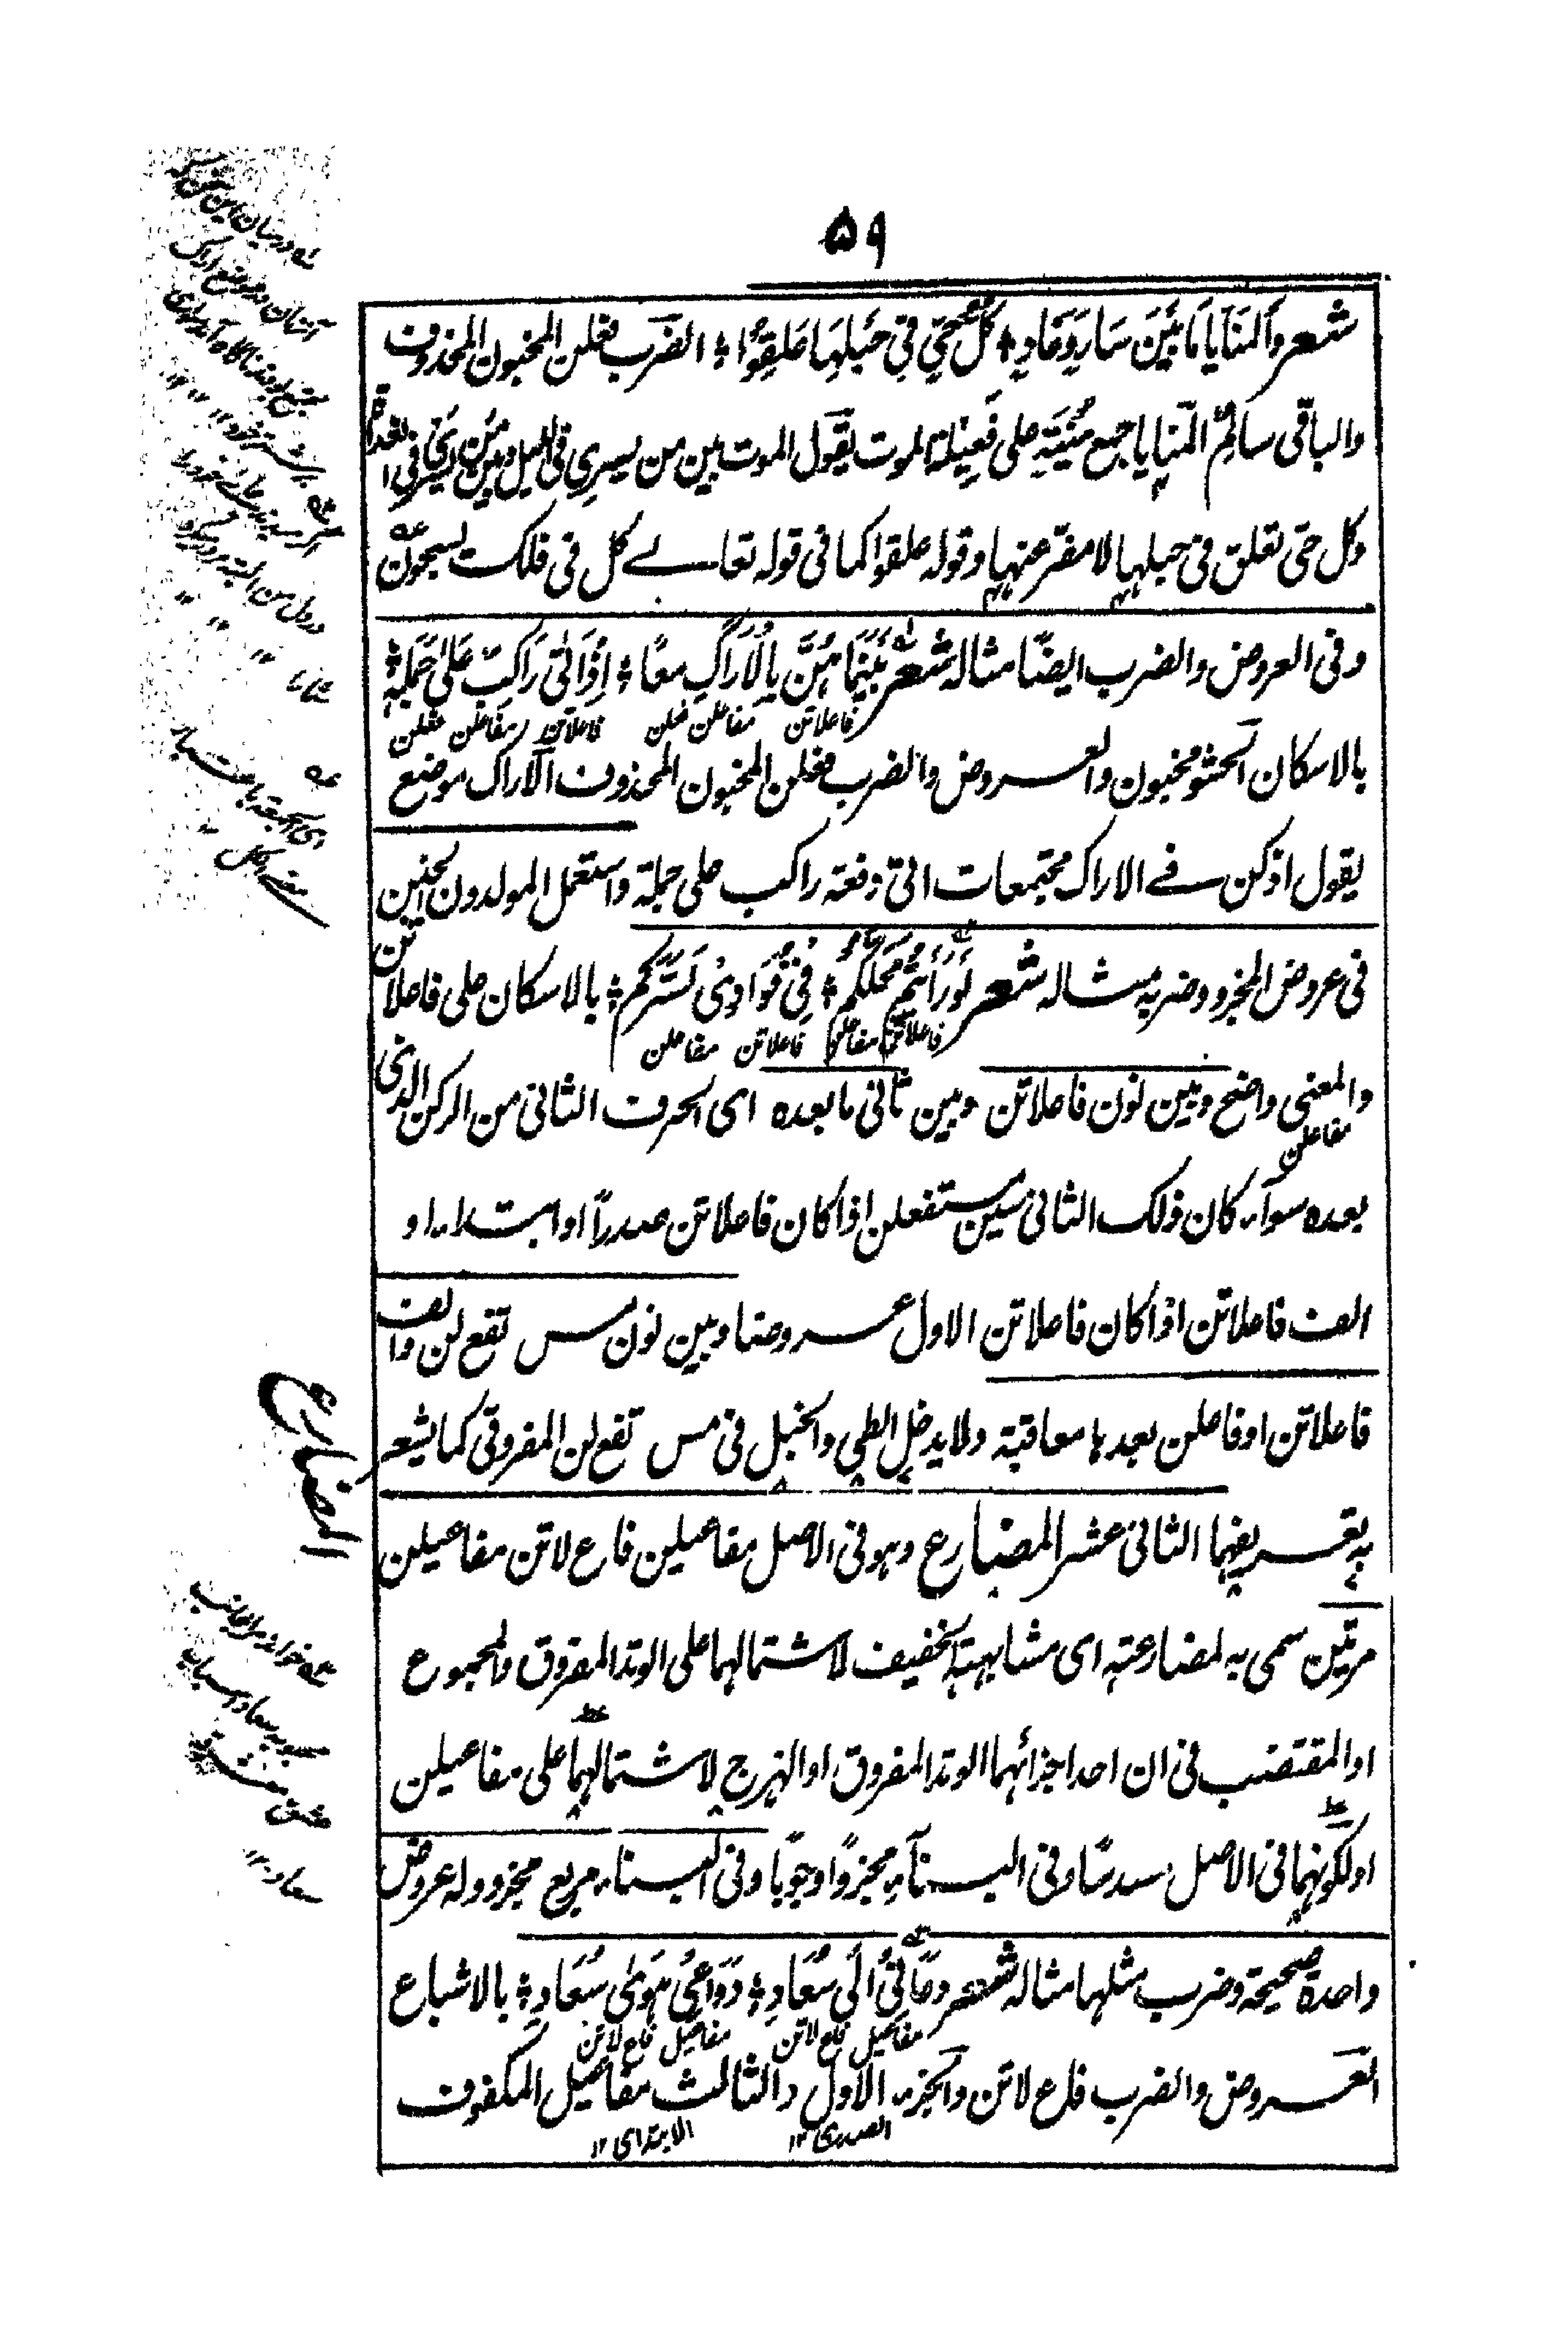 ۵۹
شعر وَالمَنَايَا مَا بَيْنَ سَارٍ وَغَادٍ ؛ كُلُّ حَيٍّ فِي حَبْلِهَا عَلِقُوا ؛ الضرب فعلن المخبون المحذوف
والباقي سالم المنايا جمع منية على فعيلة الموت يقول الموت بين من يسري في الليل وبين من يسري في الغداة
وكل حي تعلق في حبلها لا مفر عنها وقوله علقوا كما في قوله تعالے كل في فلك يسبحون
وفي العروض والضرب ايضًا مثاله شعر بَيْنَمَا هُنَّ بِالْأَرَاكِ مَعًا ؛ إِذْ أَتَى رَاكِبٌ عَلَى جَمَلِهْ ؛
فاعلاتن مفاعلن فعلن فاعلاتن مفاعلن فعلن
بالاسكان الحشو مخبون والعروض والضرب فعلن المخبون المحذوف الاراك موضع
يقول اذ كن فے الاراك مجتمعات اتى دفعة راكب على جملة واستعمل المولدون الخبن
في عروض المجزو وضربه مثاله شعر لَوْ رَأَيْتُمْ مَحَلَّكُمْ ؛ فِي فُؤَادِي لَسَرَّكُمْ ؛ بالاسكان على فاعلاتن
فاعلاتن مفاعلن فاعلاتن مفاعلن
والمعنى واضح وبين نون فاعلاتن وبين ثاني ما بعده اى الحرف الثاني من الركن الذي
مفاعلن
بعده سواء كان ذلك الثاني سين مستفعلن اذا كان فاعلاتن صدراً او ابتداء او
الف فاعلاتن اذا كان فاعلاتن الاول عروضا وبين نون مس تفع لن والف
فاعلاتن او فاعلن بعدها معاقبة ولا يدخل الطي والخبل في مس تفع لن المفروقي كما يشعر
به تعريفهما الثاني عشر المضارع وهو في الاصل مفاعيلن فاع لاتن مفاعيلن
المضارع
مرتين سمي به لمضارعته اى مشابهته الخفيف لاشتمالهما على الوتد المفروق والمجموع
او المقتضب في ان احد اجزائهما الوتد المفروق او الهزج لاشتمالهما على مفاعيلن
او لكونهما في الاصل مسدسًا وفي البناء مجزوًا وجوبًا وفي البناء مربع مجزو وله عروض
واحدة صحيحة وضرب مثلها مثاله شعر دَعَانِي إِلَى سُعَادٍ ؛ دَوَاعِي هَوَى سُعَادٍ ؛ بالاشباع
مفاعيل فاع لاتن مفاعيل فاع لاتن
العروض والضرب فاع لاتن والجزء الاول والثالث مفاعيل المكفوف
الصدر ۱۲ الابتداى ۱۲